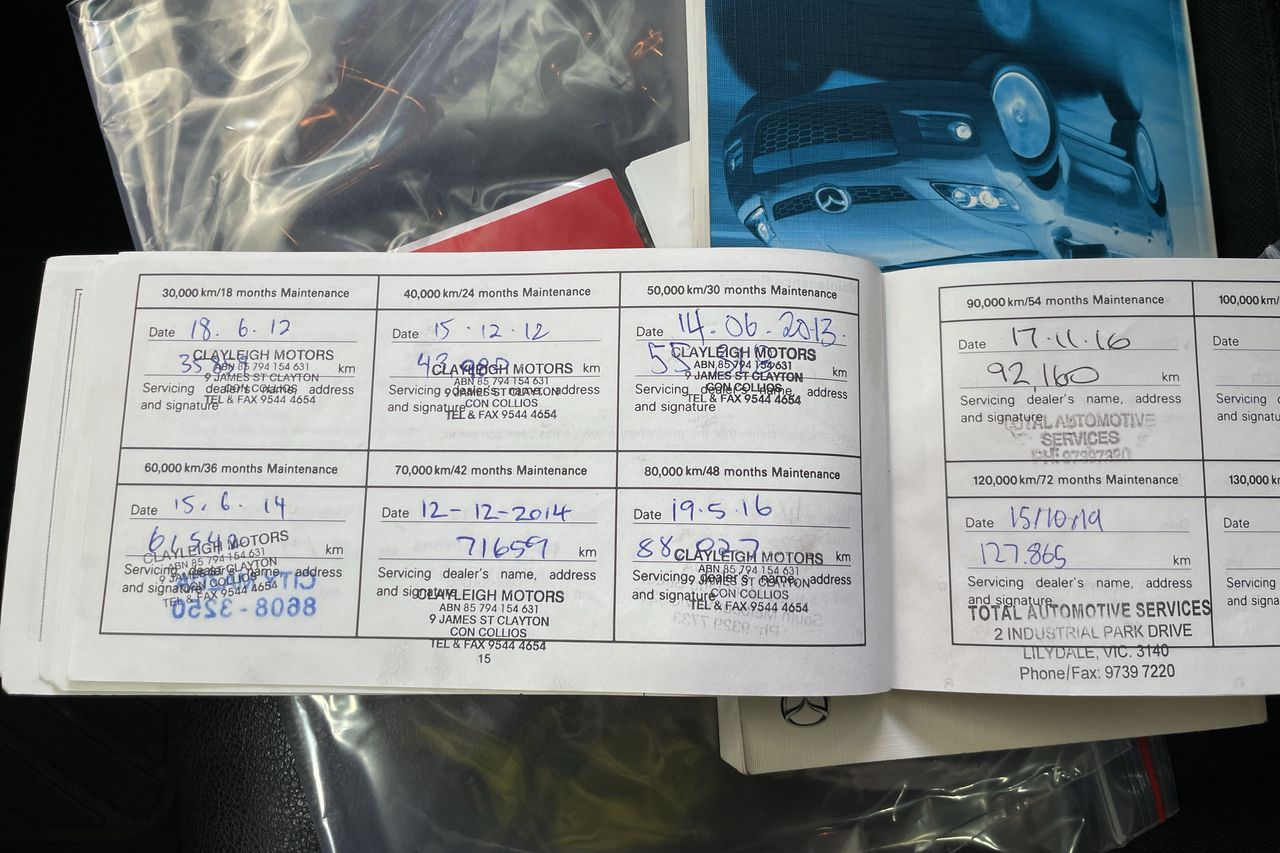 30,000 km/18 months Maintenance
Date 18.6.12
km
CLAYLEIGH MOTORS
ABN 85 794 154 631
9 JAMES ST CLAYTON
CON COLLIOS
TEL & FAX 9544 4654
Servicing dealer's name, address
and signature
40,000 km/24 months Maintenance
Date 15.12.12
km
CLAYLEIGH MOTORS
ABN 85 794 154 631
9 JAMES ST CLAYTON
CON COLLIOS
TEL & FAX 9544 4654
Servicing dealer's name, address
and signature
50,000 km/30 months Maintenance
Date 14.06.2013.
km
CLAYLEIGH MOTORS
ABN 85 794 154 631
9 JAMES ST CLAYTON
CON COLLIOS
TEL & FAX 9544 4654
Servicing dealer's name, address
and signature
60,000 km/36 months Maintenance
Date 15.6.14
km
CLAYLEIGH MOTORS
ABN 85 794 154 631
9 JAMES ST CLAYTON
CON COLLIOS
TEL & FAX 9544 4654
Servicing dealer's name, address
and signature
8608-3250
70,000 km/42 months Maintenance
Date 12-12-2014
71659 km
Servicing dealer's name, address
and signature
CLAYLEIGH MOTORS
ABN 85 794 154 631
9 JAMES ST CLAYTON
CON COLLIOS
TEL & FAX 9544 4654
80,000 km/48 months Maintenance
Date 19.5.16
88 027 km
CLAYLEIGH MOTORS
ABN 85 794 154 631
9 JAMES ST CLAYTON
CON COLLIOS
TEL & FAX 9544 4654
Servicing dealer's name, address
and signature
Ph: 9329 7733
15
90,000 km/54 months Maintenance
Date 17.11.16
92,160 km
Servicing dealer's name, address
and signature
TOTAL AUTOMOTIVE
SERVICES
100,000 km/
Date
Servicing
and signa
120,000 km/72 months Maintenance
Date 15/10/19
127.865 km
Servicing dealer's name, address
and signature
TOTAL AUTOMOTIVE SERVICES
2 INDUSTRIAL PARK DRIVE
LILYDALE, VIC. 3140
Phone/Fax: 9739 7220
130,000 km
Date
Servicing
and signa